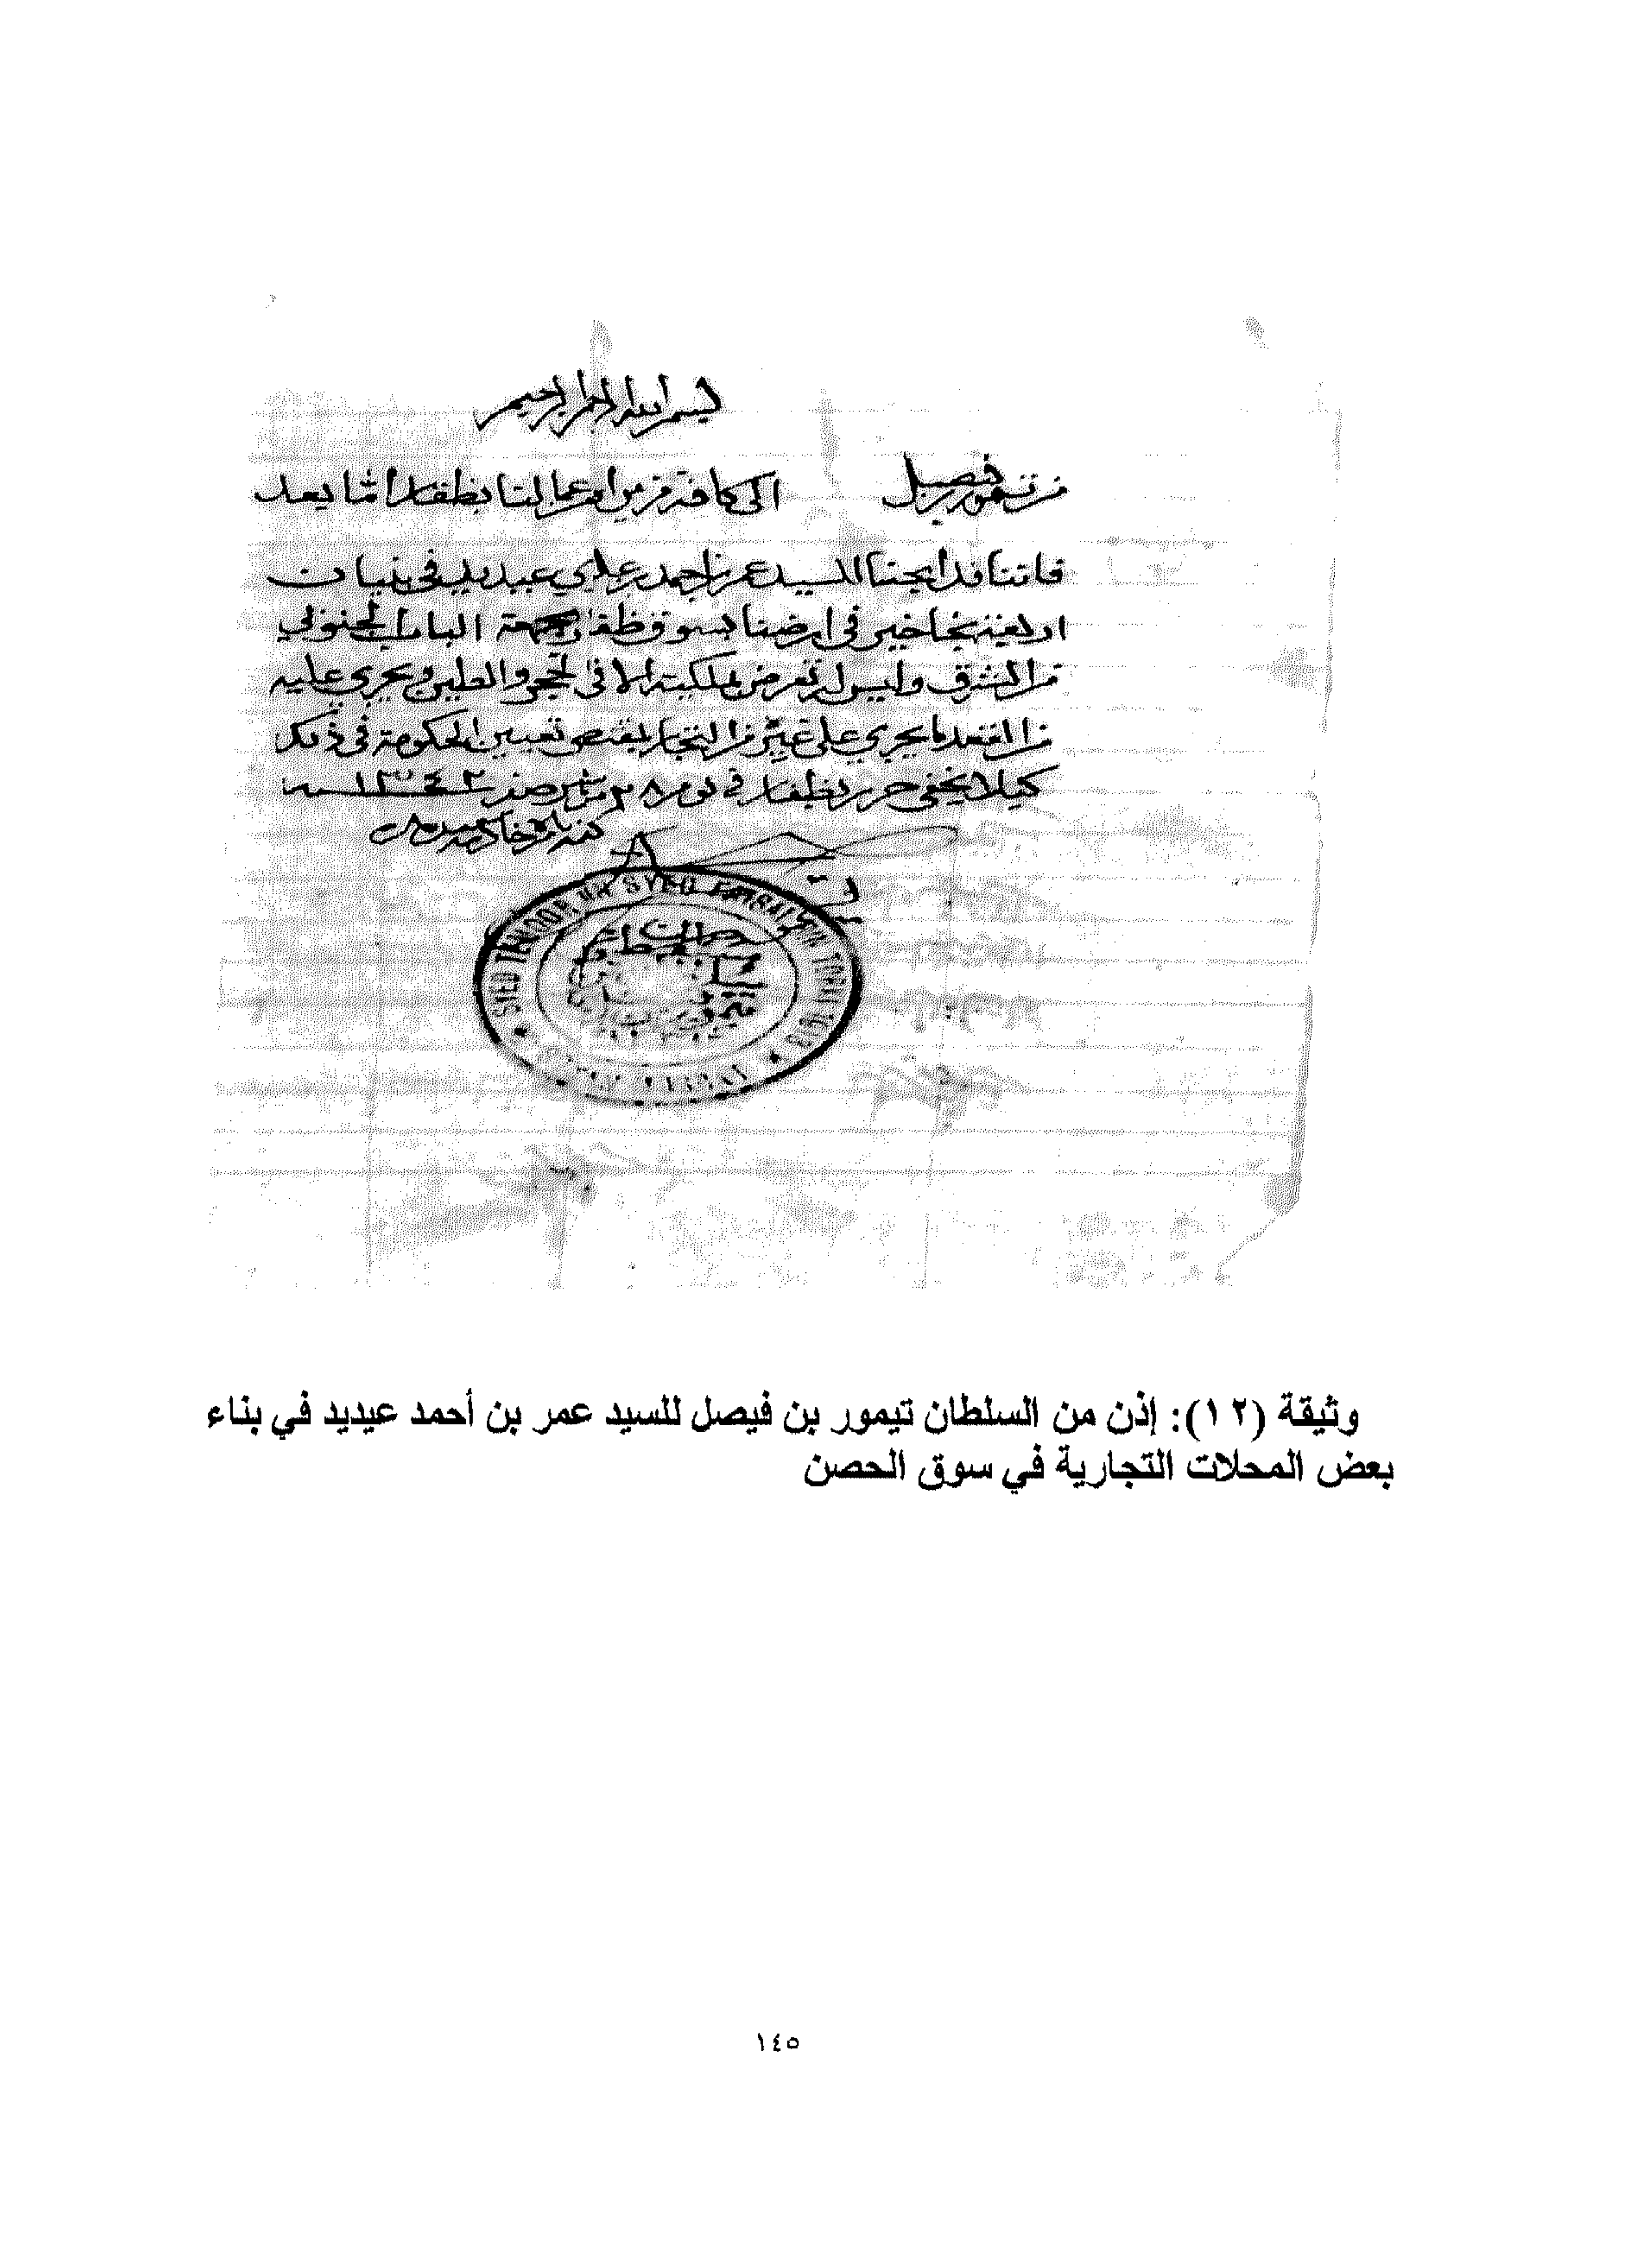 بسم الله الرحمن الرحيم
من تيمور بن فيصل الى كافة من يراه من عمالنا بظفار اما بعد
فاننا قد ابحنا للسيد عمر بن احمد بن علوي عيديد في بنيات
اربعة بخاخير في ارضنا بسوق ظفار جهة الباب الجنوبي
من الشرق وليس له تعرض بملكيته الا في الحجر والطين ويجري عليه
من القعد ما يجري على غيره من التجار بمقتضى تعيين الحكومة في ذلك
كيلا يخفى حرر بظفار في يوم ٢٨ من شهر صفر سنة ١٣٤٢
كتبه بامره خادمه
SYED TEMOOR BIN SYED FAISAL BIN TORKI 1913
وثيقة (١٢): إذن من السلطان تيمور بن فيصل للسيد عمر بن أحمد عيديد في بناء
بعض المحلات التجارية في سوق الحصن
١٤٥